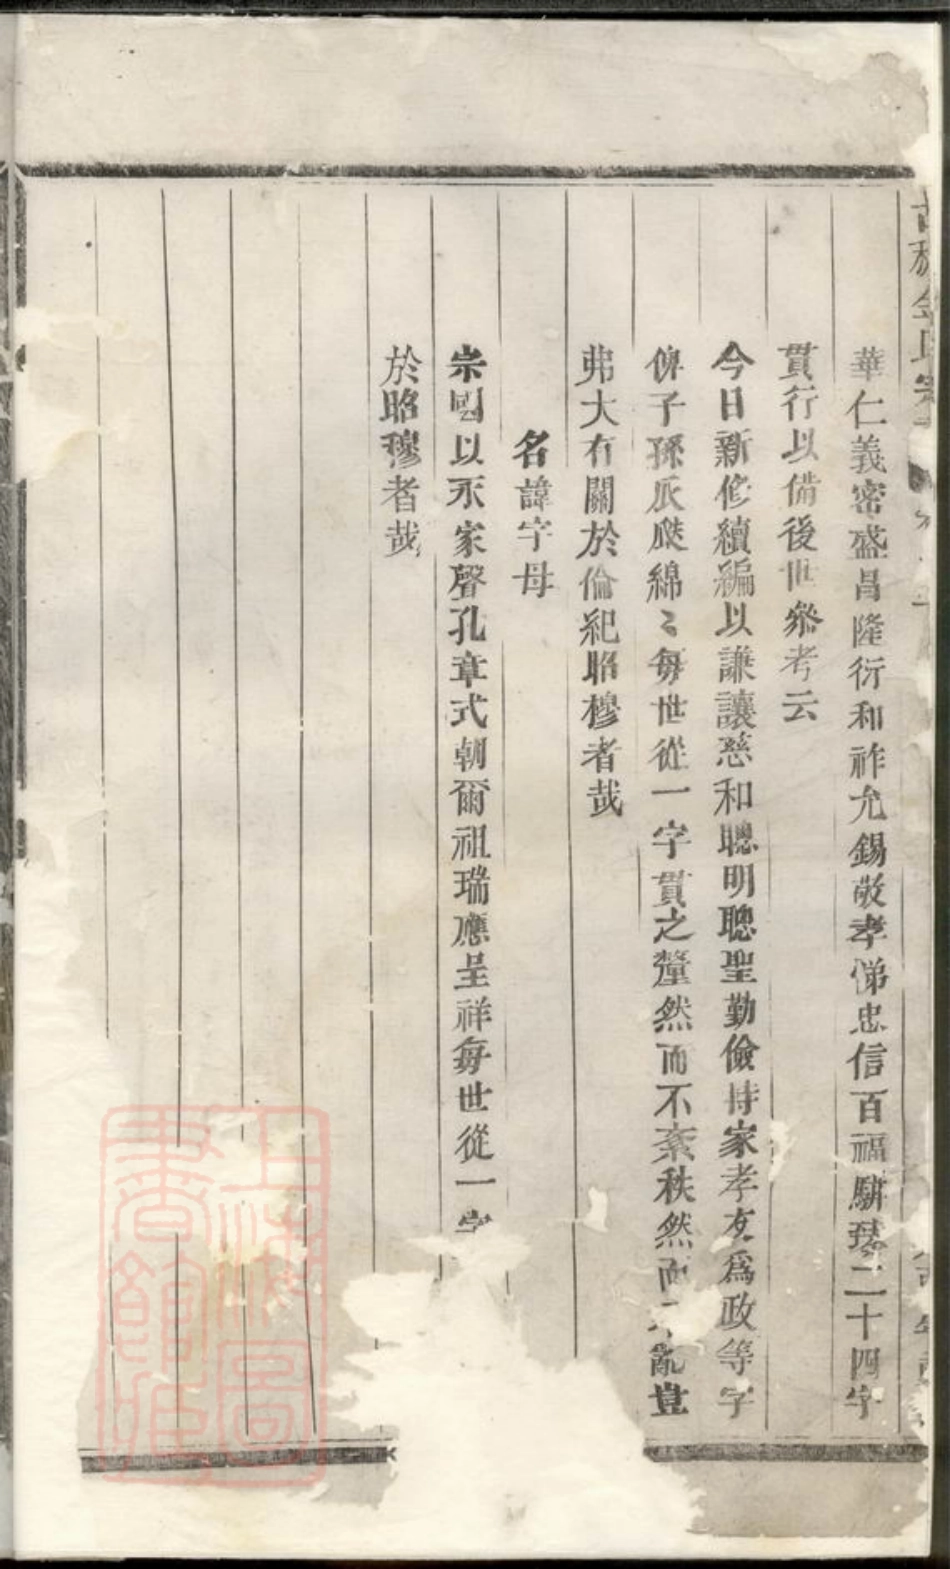 華仁義密盛昌隆衍和祚允錫敬孝悌忠信百福駢臻二十四字
貫行以備後世叅考云
今日新修續編以謙讓慈和聰明聰聖勤儉持家孝友爲政等字
俾子孫瓜瓞綿〻每世從一字貫之釐然而不紊秩然而不亂豈
弗大有關於倫紀昭穆者哉
名諱字母
宗國以永家聲孔章式朝爾祖瑞應呈祥每世從一字
於昭穆者哉
上海圖書館藏